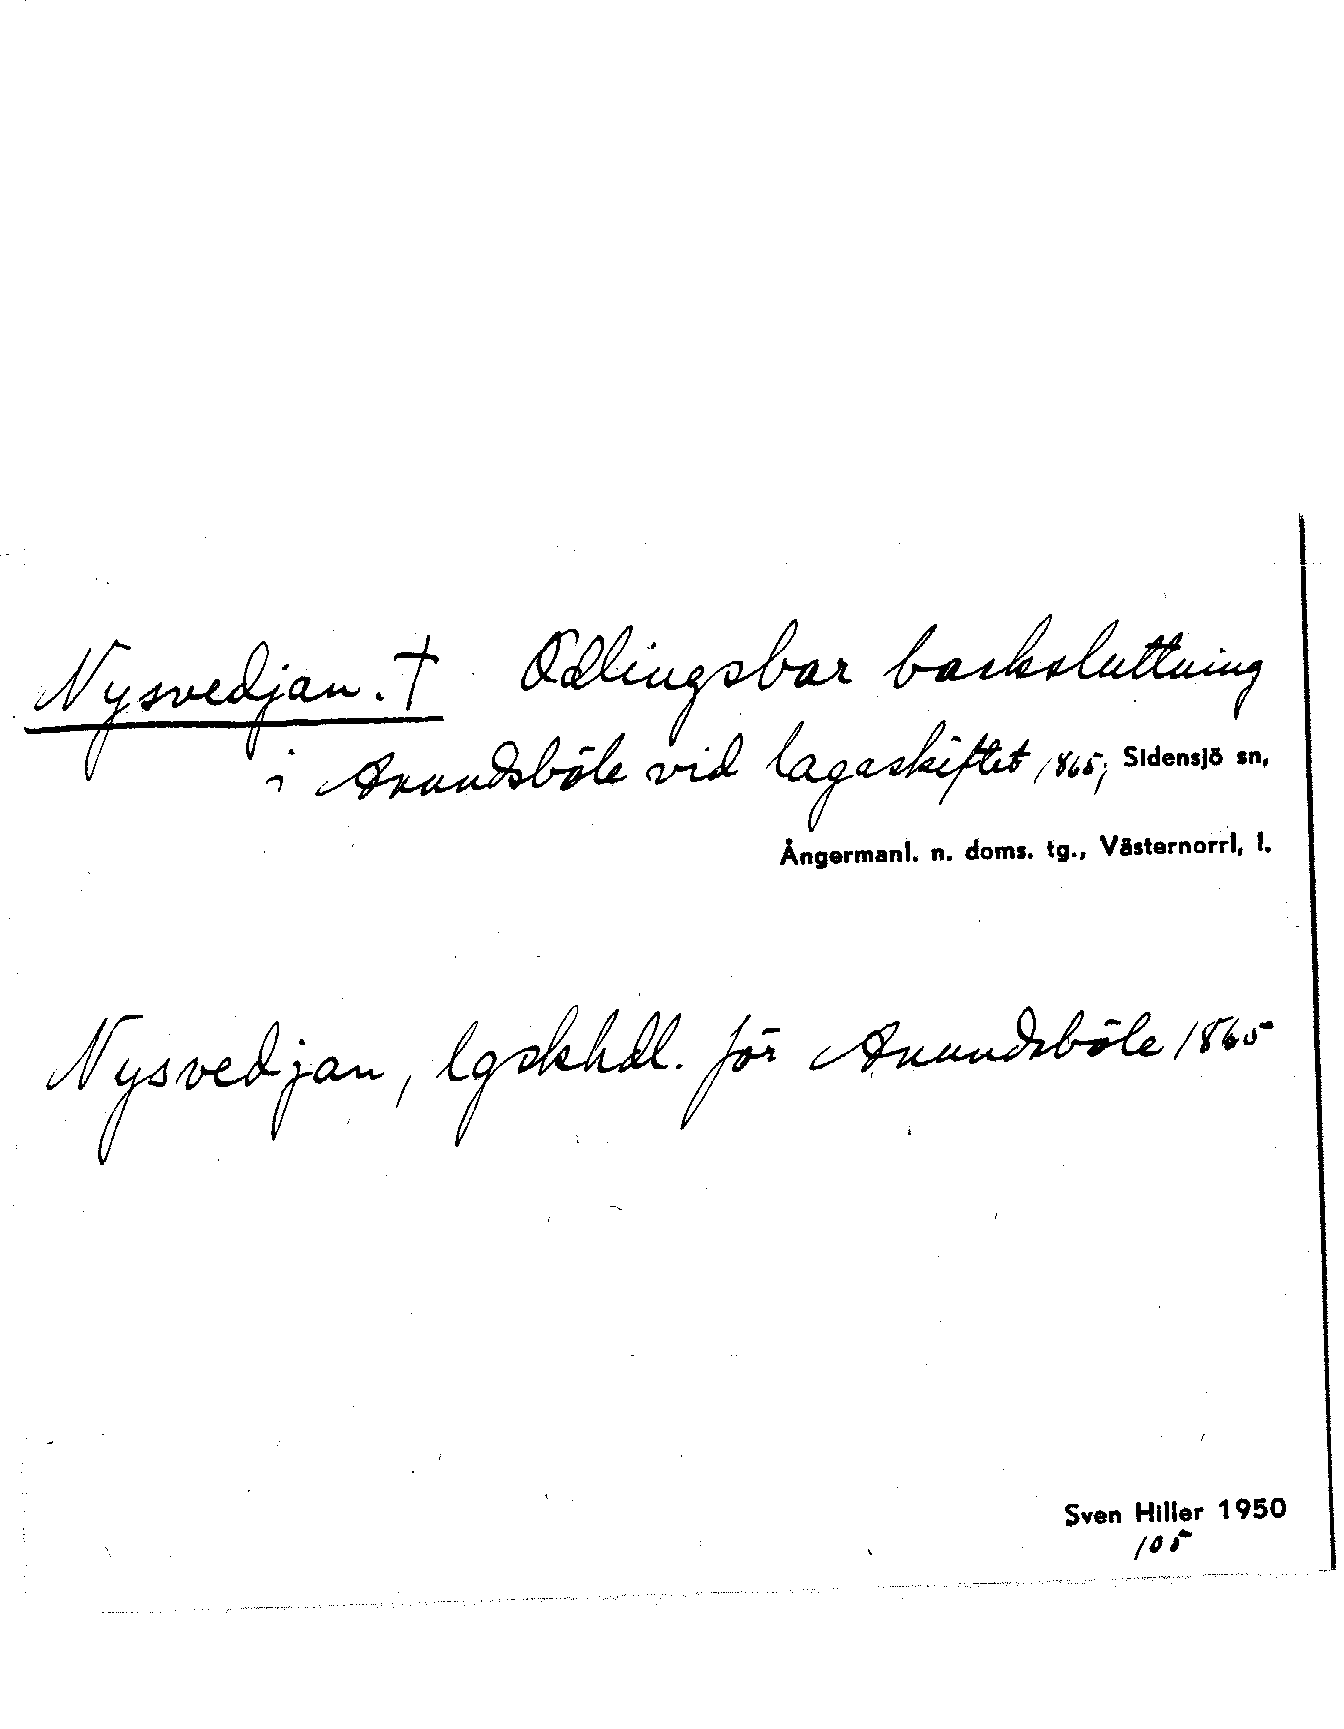 Nysvedjan. † Odlingsbar backsluttning
i Anundsböle vid lagaskiftet 1865, Sidensjö sn,
Ångermanl. n. doms. tg., Västernorrl, l.
Nysvedjan, lgskhdl. för Anundsböle 1865
Sven Hiller 1950
105